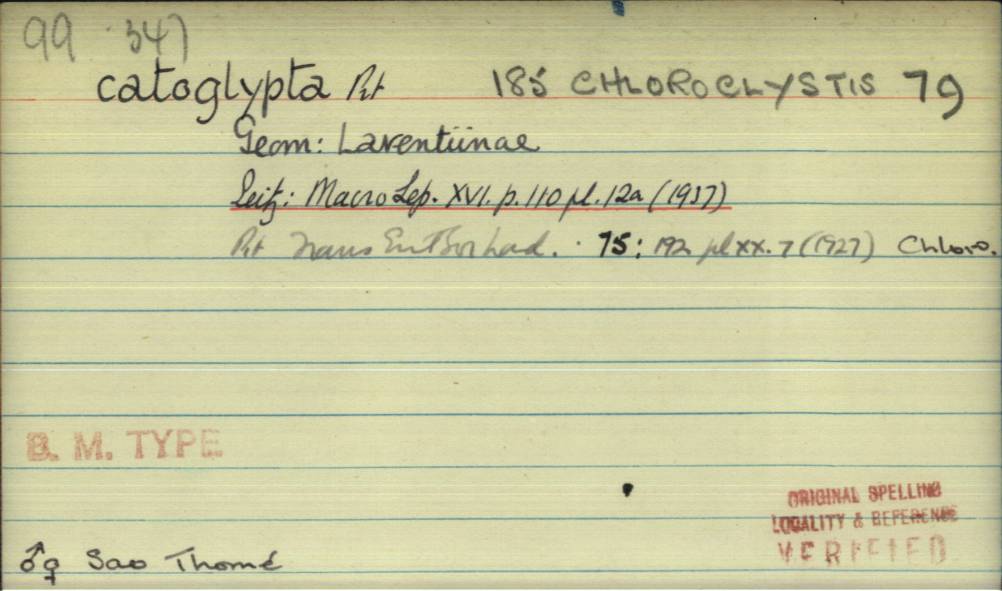 99 347
catoglypta Prt 185 CHLOROCLYSTIS 79
Geom: Larentiinae
Seitz: Macro Lep. XVI. p. 110 pl. 12a (1937)
Prt Trans Ent Soc Lond. 75: 192 pl xx. 7 (1927) Chloro.
B. M. TYPE
ORIGINAL SPELLING
LOCALITY & REFERENCE
VERIFIED
♂♀ Sao Thomé